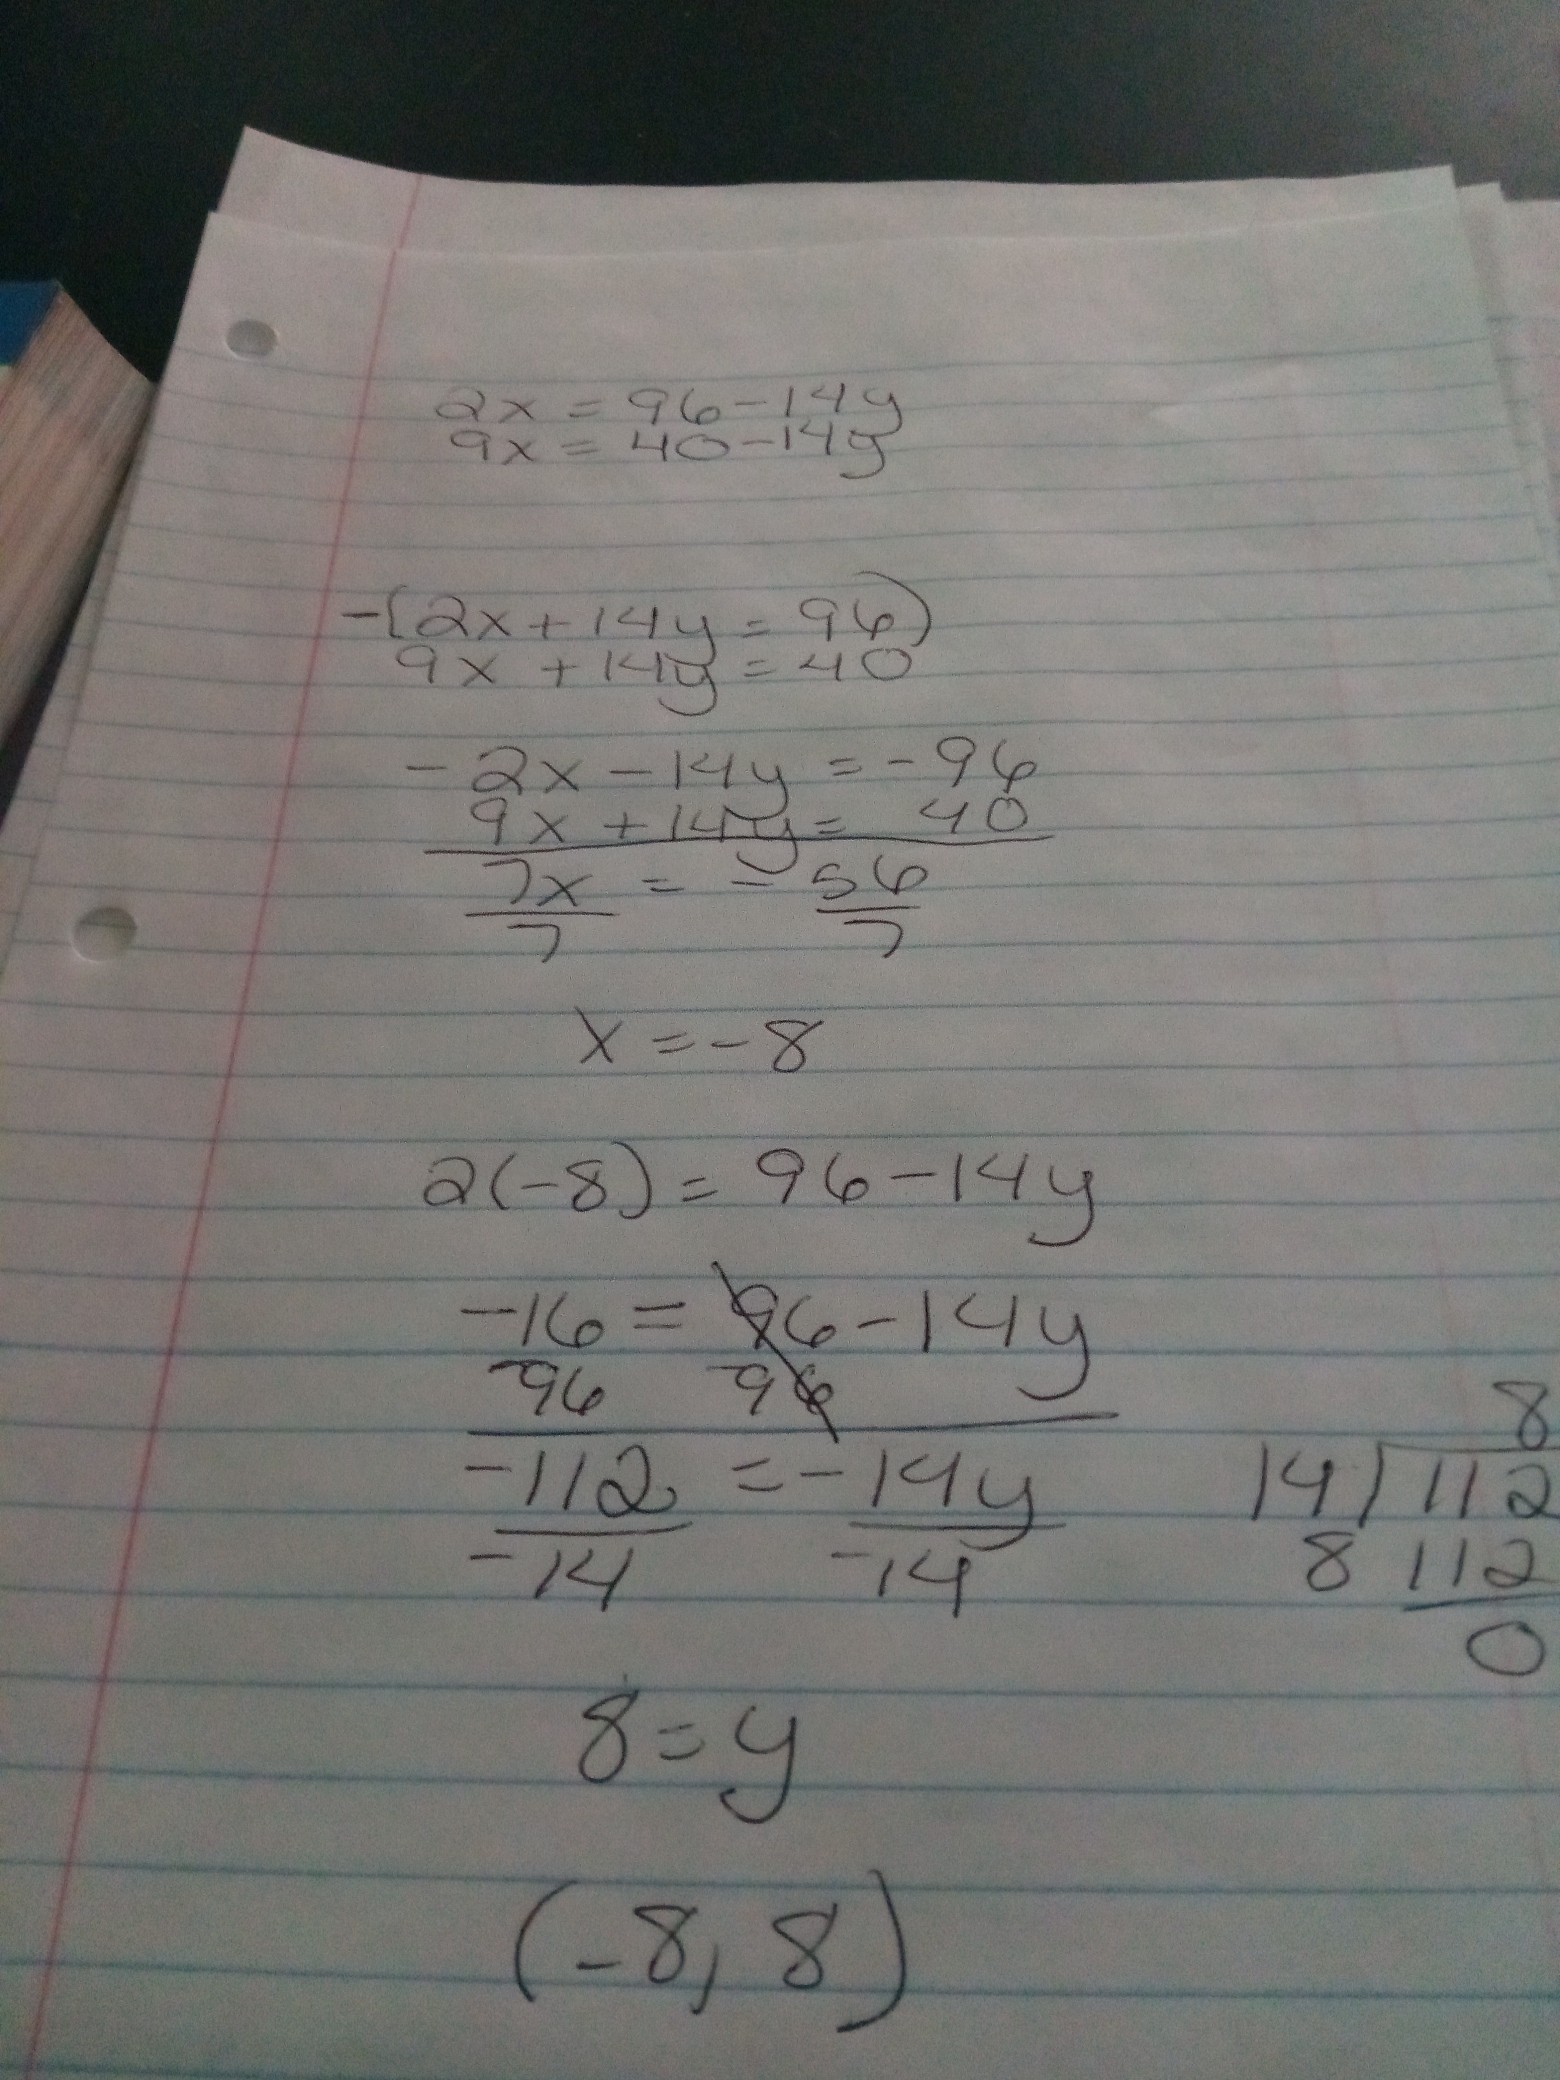 2x = 96 - 14y
9x = 40 - 14y
-(2x + 14y = 96)
9x + 14y = 40
-2x - 14y = -96
9x + 14y = 40
7x = -56
7 7
x = -8
2(-8) = 96 - 14y
-16 = 96 - 14y
-96 -96
-112 = -14y
-14 -14
8
14)112
8 112
0
8 = y
(-8, 8)